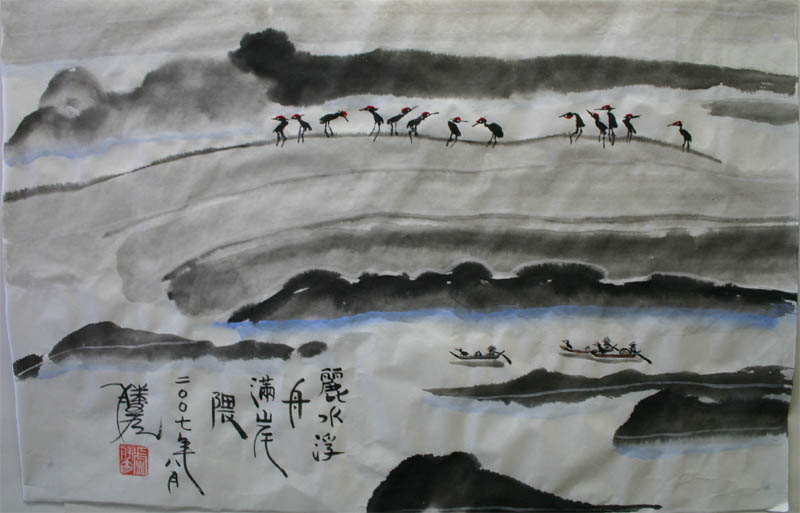 麗水浮
舟
滿岸
隈
二〇〇七年八月